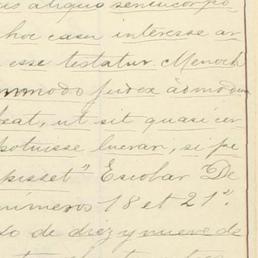 aliquo sentiu corpo,
hoc casu interesse ar
esse testatur Menoch
mmodo judex admodum
eat, ut sit quasi cer
potuisse lucrari, si pe
pisset" Escobar De
números 18 et 21".
so de diez y nueve de